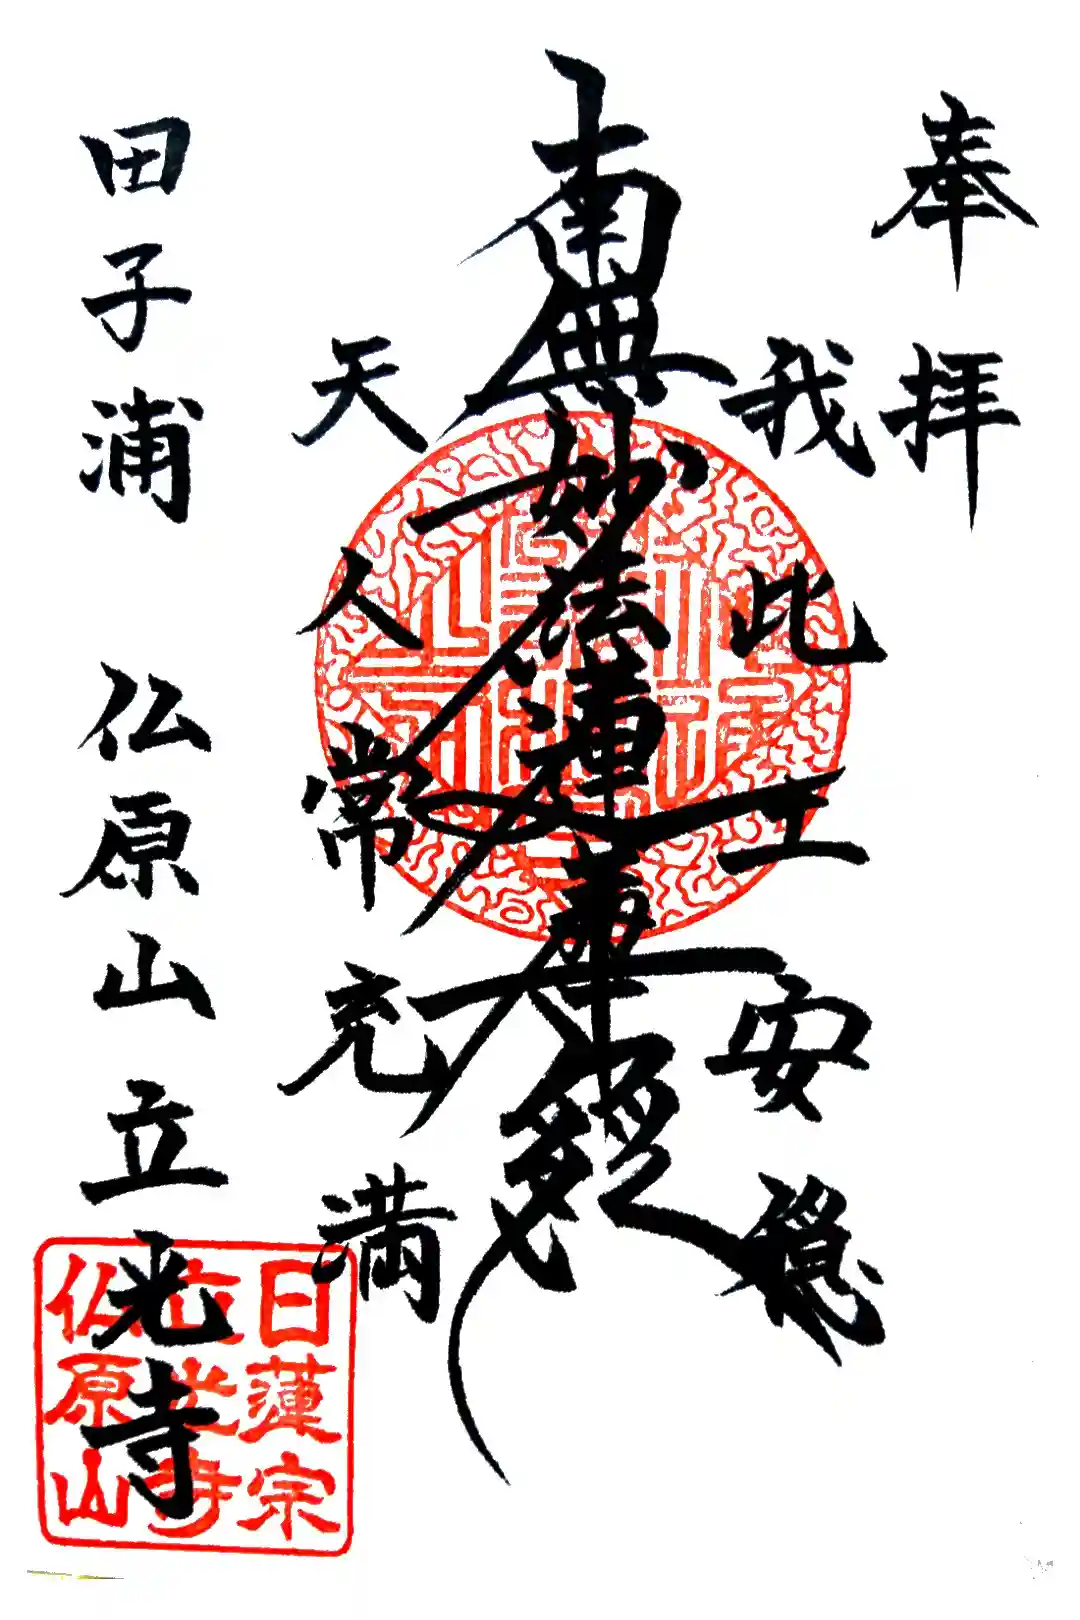 奉拝
我此土安穏
南無妙法蓮華経
天人常充満
田子浦 仏原山 立光寺
日蓮宗
立光寺
仏原山